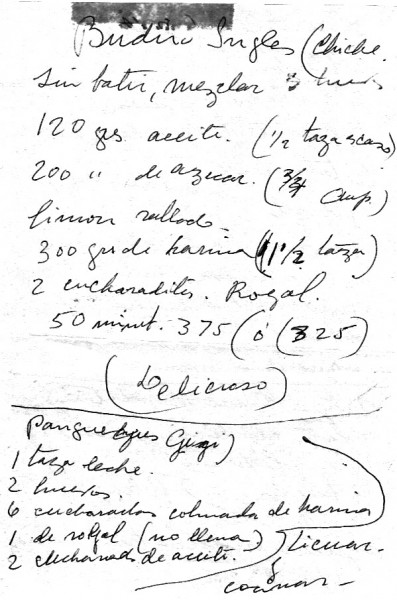 Budin Ingles (Chiche.
Sin batir, mezclar 3 huevos
120 grs aceite. (1/2 taza escasa)
200 " de azucar. (3/4 cup.)
limon rallado
300 grs de harina (1 1/2 taza)
2 cucharaditas. Royal.
50 minut. 375 (ó (325)
(Delicioso)
panqueques Gigi)
1 taza leche.
2 huevos.
6 cucharadas colmada de harina
1 de royal (no llena)
2 cucharadas de aceite.
Licuar.
y
cocinar